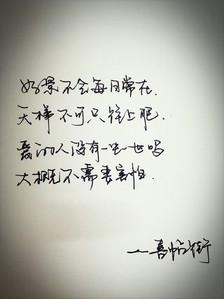 好景不会每日常在
天梯不可只往上爬
爱的人没有一生一世吗
大概不需要害怕
——喜帖街